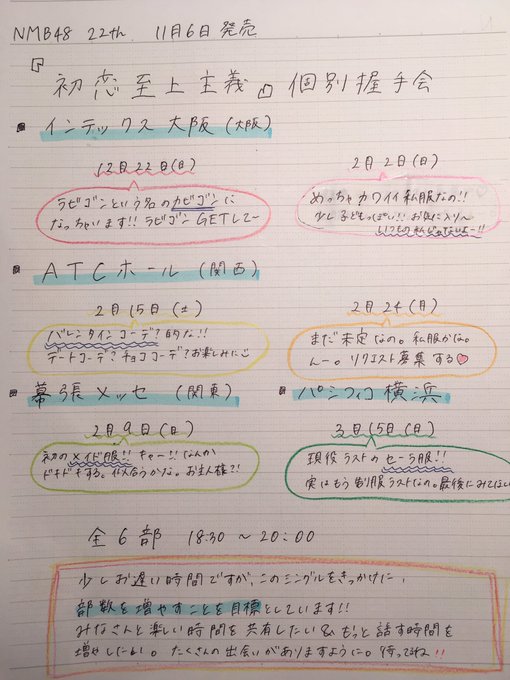 NMB48 22th 11月6日発売
『初恋至上主義』個別握手会
インテックス大阪(大阪)
12月22日(日)
ラビゴンという名のカビゴンに
なっちゃいます!! ラビゴンGETしてー
2月2日(日)
めっちゃカワイイ私服なの!!
少し子どもっぽい!! お気に入り〜
いつもの私じゃないよー!!
ATCホール(関西)
2月15日(土)
バレンタインコーデ?的な!!
デートコーデ?チョココーデ?お楽しみに
2月24(月)
まだ未定なの。私服かな。
んー。リクエスト募集する♡
幕張メッセ (関東)
2月9日(日)
初のメイド服!! キャー!! なんか
ドキドキする。似合うかな。お主人様?!
パシフィコ横浜
3月15日(日)
現役ラストのセーラ服!!
実はもう制服ラストなの。最後にみてほしい
全6部 18:30〜20:00
少しお遅い時間ですが、このシングルをきっかけに、
部数を増やすことを目標としています!!
みなさんと楽しい時間を共有したい&もっと話す時間を
増やしたい。たくさんの出会いがありますように。待ってるね!!